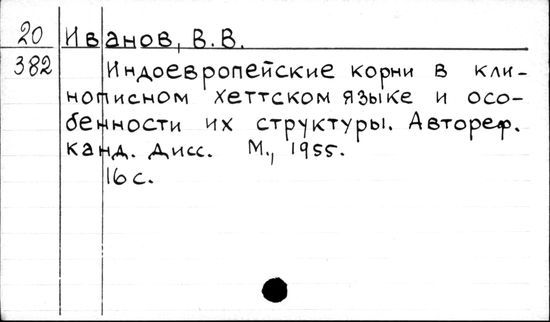 20 Иванов, В.В.
382 Индоевропейские корни в кли-
нописном хеттском языке и осо-
бенности их структуры. Автореф.
канд. дисс. М., 1955.
16 с.